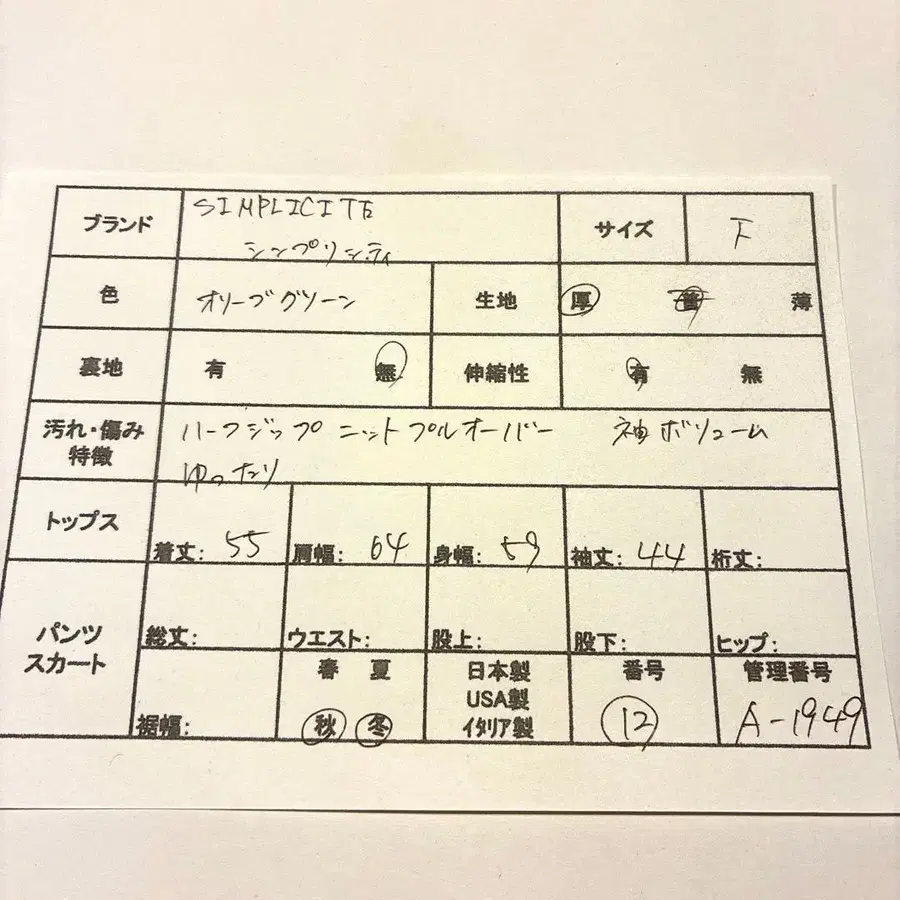 ブランド SIMPLICITE サイズ F
シンプリシティ
色 オリーブグリーン 生地 厚 普 薄
裏地 有 無 伸縮性 有 無
汚れ・傷み ハーフジップ ニットプルオーバー 袖ボリューム
特徴 ゆったり
トップス 着丈: 55 肩幅: 64 身幅: 59 袖丈: 44 裄丈:
パンツ
スカート
総丈: ウエスト: 股上: 股下: ヒップ:
裾幅:
春 夏
秋 冬
日本製
USA製
イタリア製
番号
12
管理番号
A-1949